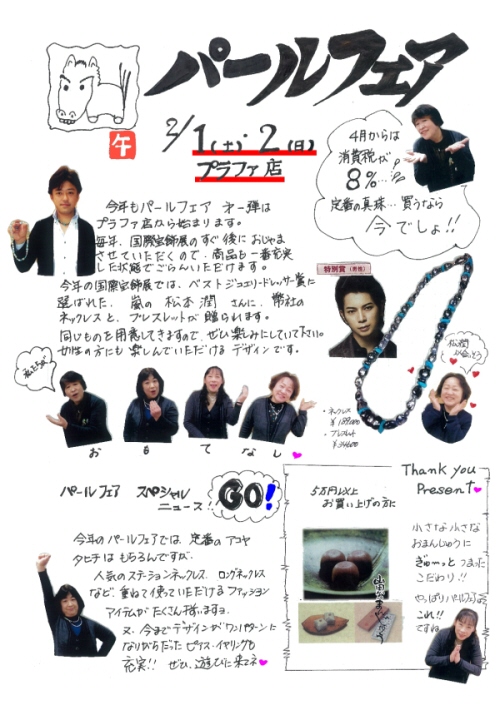 パールフェア
午
2/1(土)・2(日)
プラファ店
4月からは
消費税が
8%…
定番の真珠…買うなら
今でしょ!!
今年もパールフェア 第一弾は
プラファ店から始まります。
毎年、国際宝飾展のすぐ後におじゃま
させていただくので、商品も一番充実
した状態でごらんいただけます。
今年の国際宝飾展では、ベストジュエリードレッサー賞に
選ばれた、嵐の松本潤さんに、弊社の
ネックレスと、ブレスレットが贈られます。
同じものを用意してきますので、ぜひ楽しみにしていて下さい。
女性の方にも楽しんでいただけるデザインです。
特別賞(男性)
松潤
・ネックレス
¥189,000
・ブレスレット
私たちが
お も て な し
パールフェア スペシャル
ニュース!
GO!
今年のパールフェアでは、定番のアコヤ
タヒチはもちろんですが、
人気のステーションネックレス、ロングネックレス
など、重ねて使っていただけるファッション
アイテムがたくさん揃いますヨ。
又、今までデザインがワンパターンに
なりがちだったピアス・イヤリングも
充実!! ぜひ、遊びに来てネ
Thank you
Present
5万円以上
お買い上げの方に
小さな小さな
おまんじゅうに
ぎゅーっとつまった
こだわり!!
やっぱりパールフェアは
これ!!
ですね